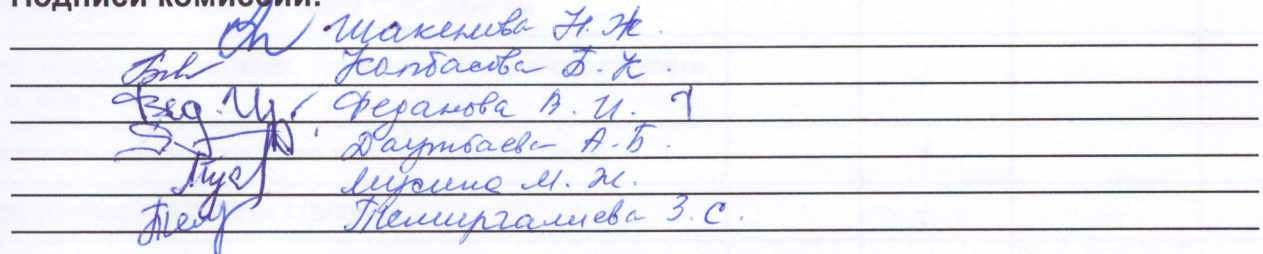 Подписи комиссии:
Шакенова Н. Ж.
Колбасова Б. К.
Феданова В. И.
Даутбаева А. Б.
Мусина М. Ж.
Темиргалиева З. С.